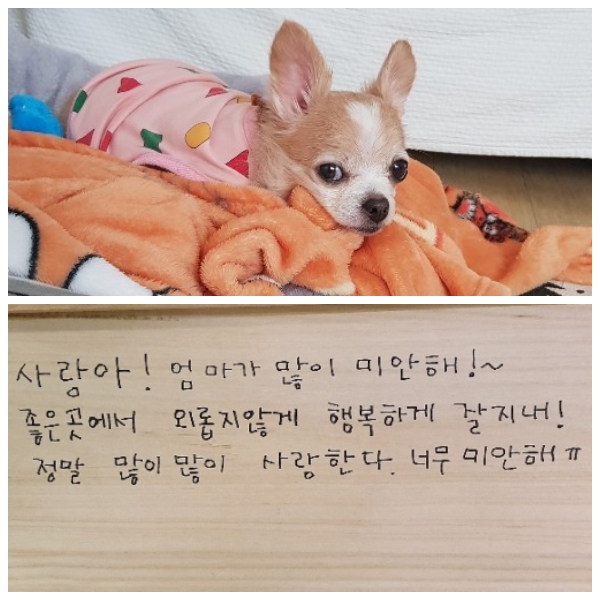 사랑아! 엄마가 많이 미안해!~
좋은곳에서 외롭지않게 행복하게 잘지내!
정말 많이많이 사랑한다. 너무 미안해ㅠ